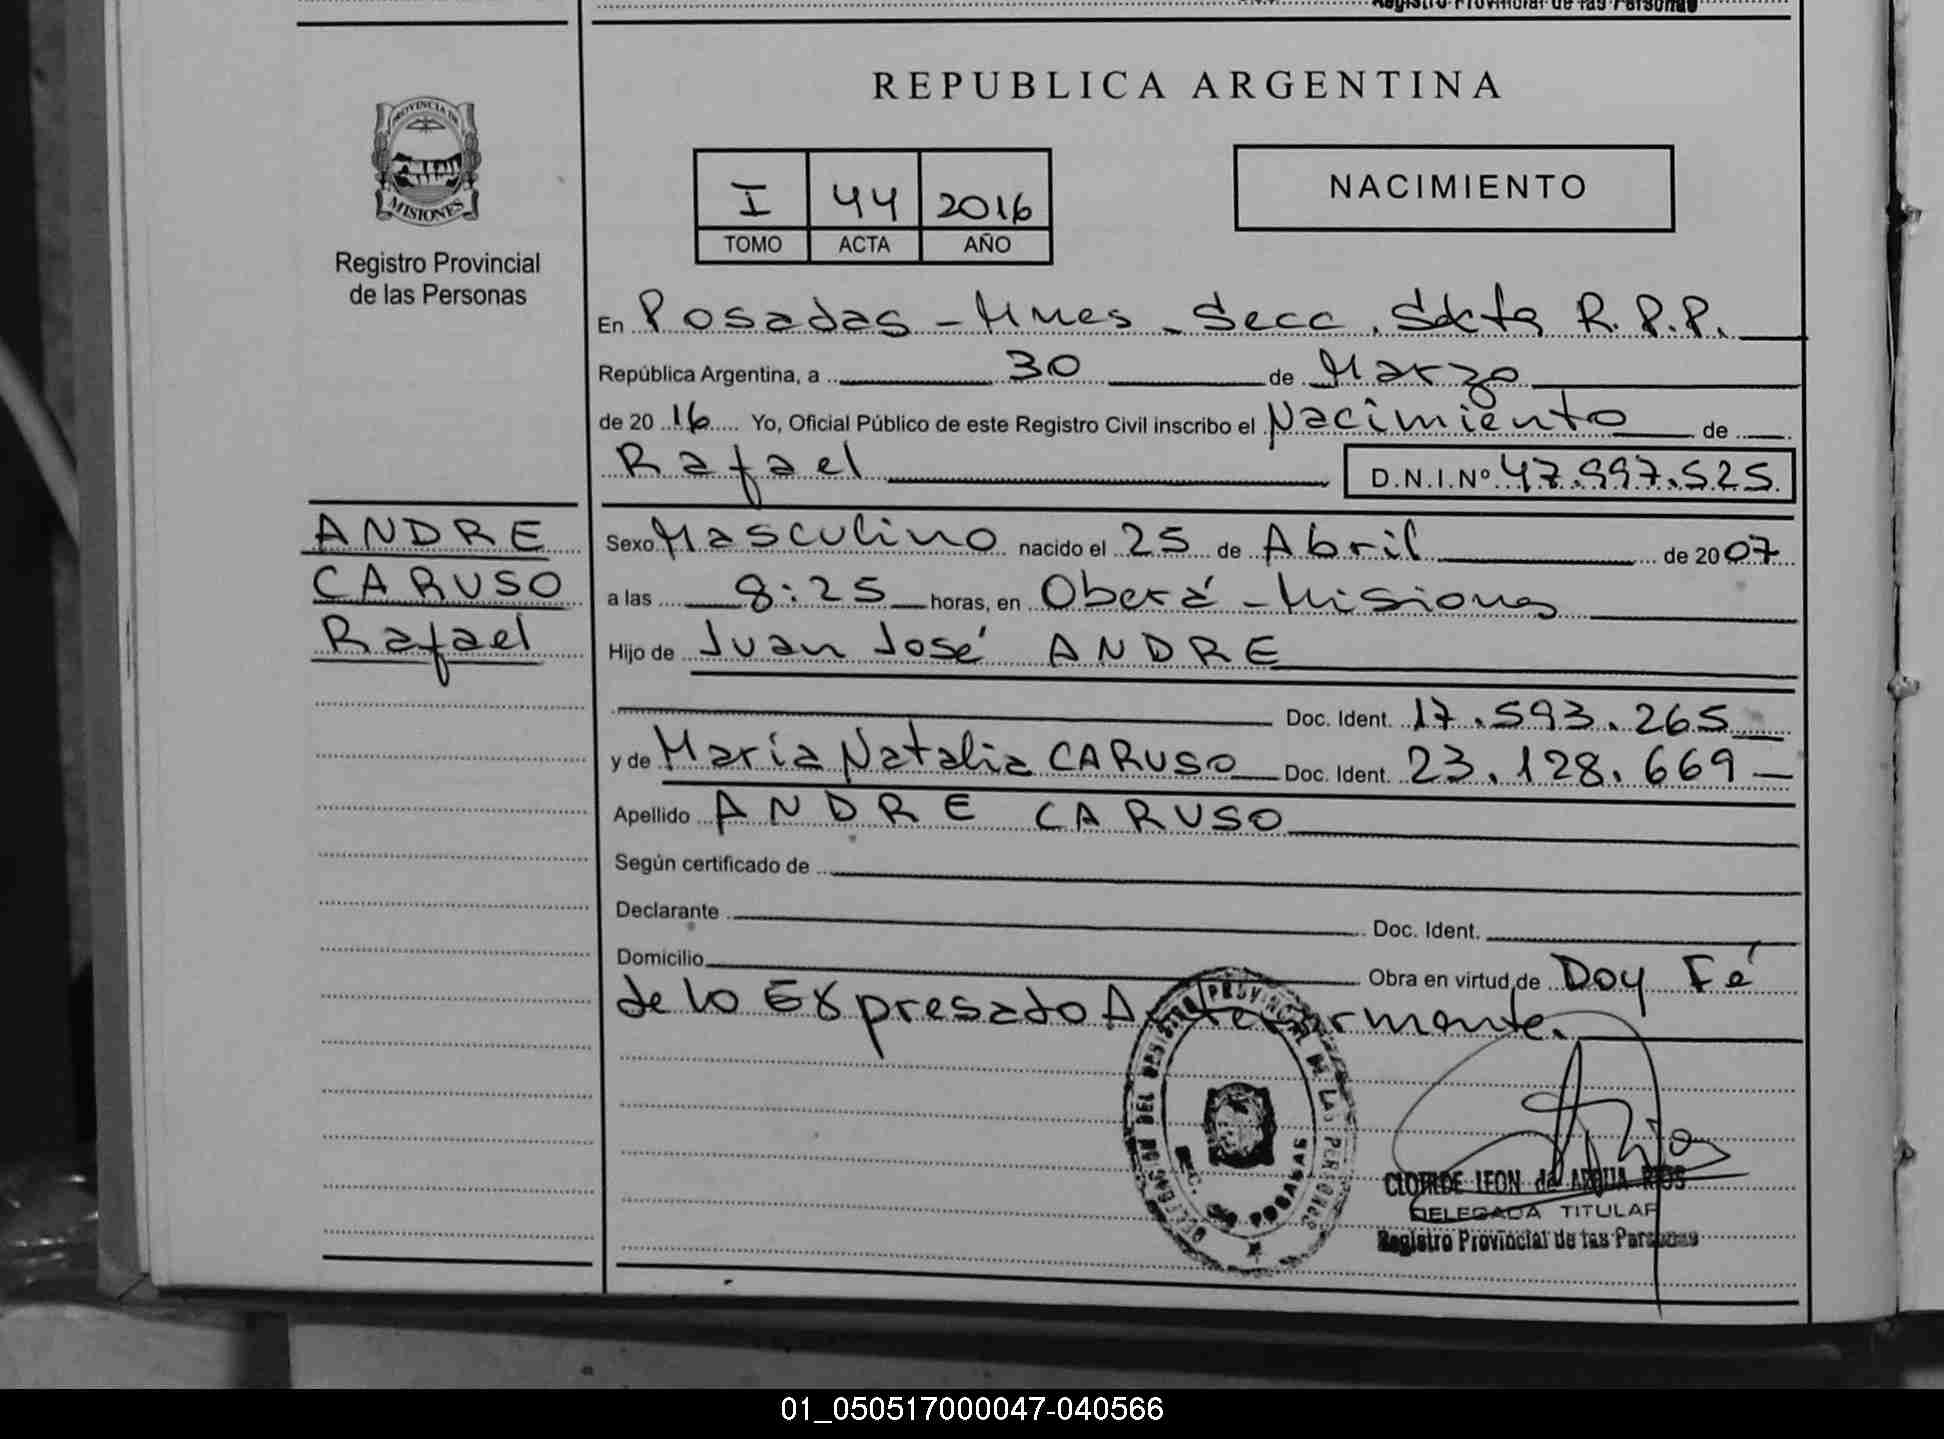 Registro Provincial de las Personas
REPUBLICA ARGENTINA
PROVINCIA DE
MISIONES
Registro Provincial
de las Personas
I 44 2016
TOMO ACTA AÑO
NACIMIENTO
En Posadas - Mnes - Secc. Sexta R.P.P.
República Argentina, a 30 de Marzo
de 2016 Yo, Oficial Público de este Registro Civil inscribo el Nacimiento de
Rafael D.N.I.Nº 47.997.525
ANDRE
CARUSO
Rafael
Sexo Masculino nacido el 25 de Abril de 2007
a las 8:25 horas, en Oberá - Misiones
Hijo de Juan José ANDRE
Doc. Ident. 17.593.265
y de María Natalia CARUSO Doc. Ident. 23.128.669
Apellido ANDRE CARUSO
Según certificado de
Declarante Doc. Ident.
Domicilio Obra en virtud de Doy Fé
de lo Expresado Anteriormente.
PROVINCIAL DE LAS PERSONAS
POSADAS
CLOTILDE LEON de ARQUA RIOS
DELEGADA TITULAR
Registro Provincial de las Personas
01_050517000047-040566